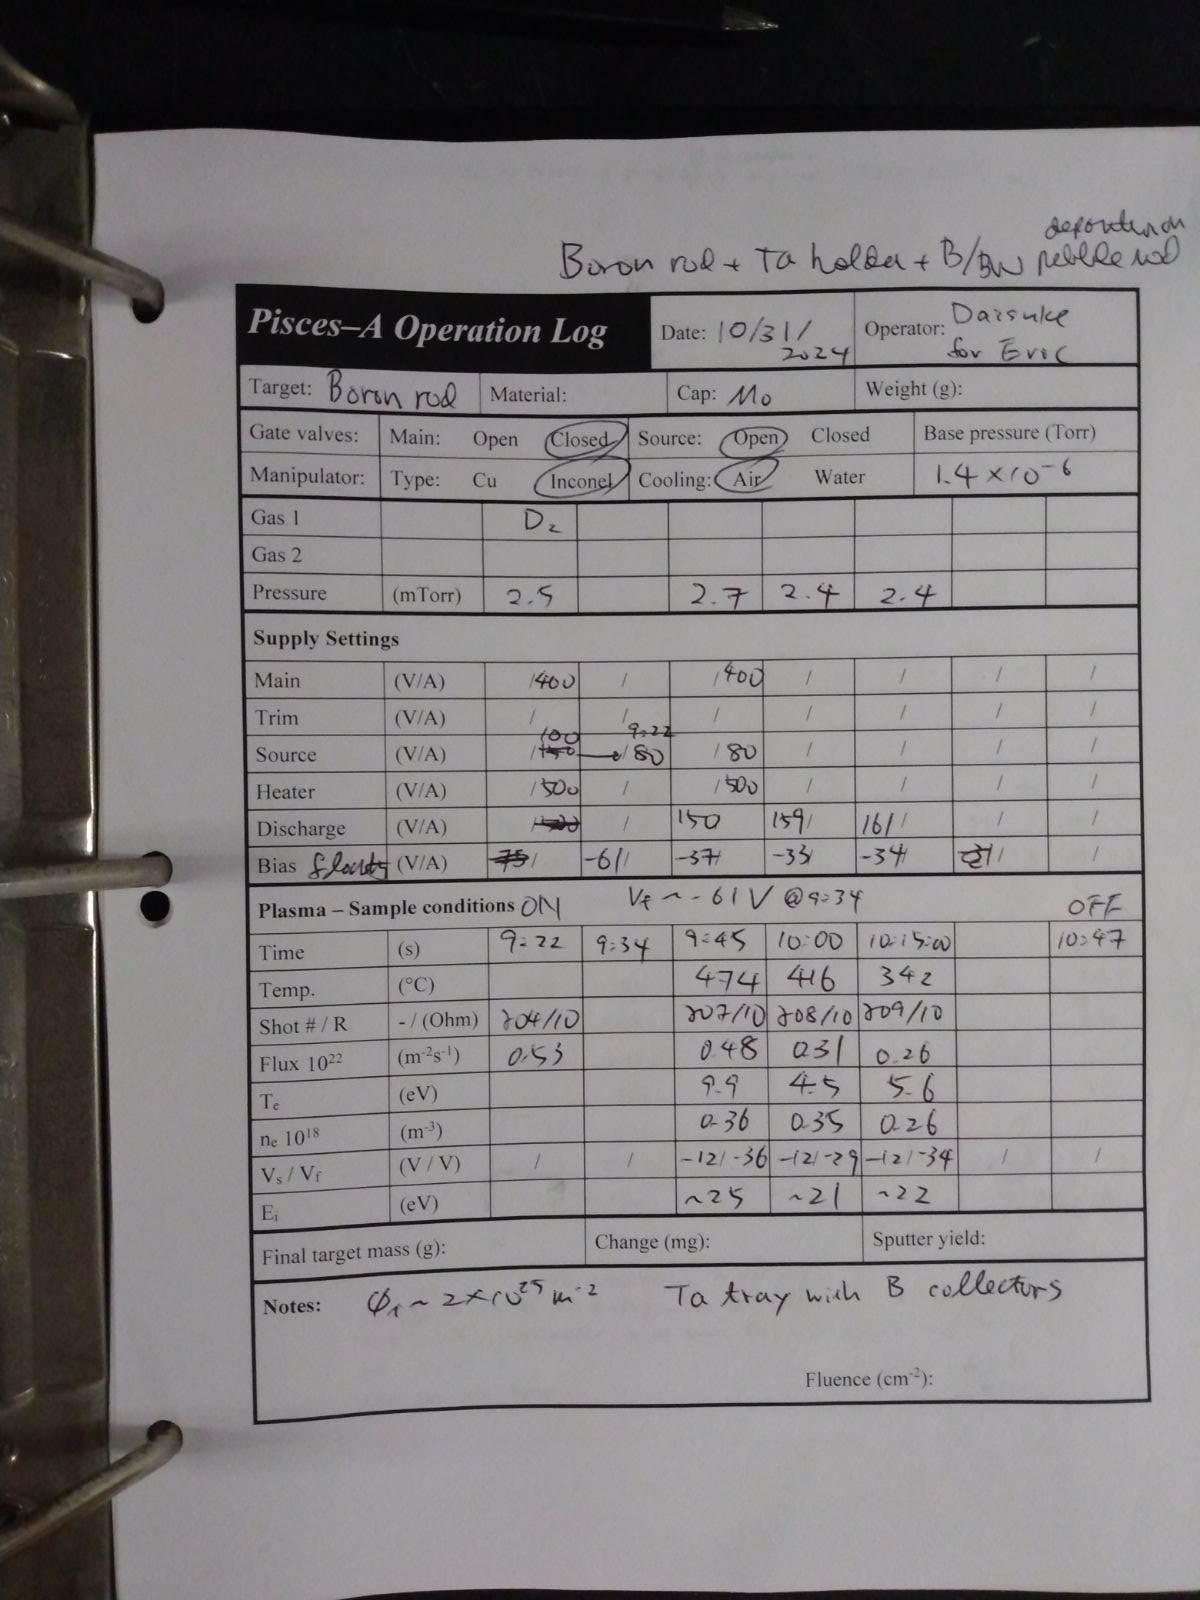 deposition on
Boron rod + Ta holder + B/BW pebble rod
Pisces–A Operation Log Date: 10/31/2024 Operator: Daisuke for Eric
Target: Boron rod Material: Cap: Mo Weight (g):
Gate valves: Main: Open Closed Source: Open Closed Base pressure (Torr)
Manipulator: Type: Cu Inconel Cooling: Air Water 1.4 × 10⁻⁶
Gas 1 D₂
Gas 2
Pressure (mTorr) 2.5 2.7 2.4 2.4
Supply Settings
Main (V/A) /400 / /400 / / / /
Trim (V/A) / / / / / / /
100 9:22
Source (V/A) /150 → /80 /80 / / / /
Heater (V/A) /500 / /500 / / / /
Discharge (V/A) / 150 159/ 161/ / /
Bias floating (V/A) 75/ -61/ -37/ -33/ -34/ / /
Plasma – Sample conditions ON Vf ~ -61 V @ 9:34 OFF
Time (s) 9:22 9:34 9:45 10:00 10:15:00 10:47
Temp. (°C) 474 416 342
Shot # / R - / (Ohm) 204/10 207/10 208/10 209/10
Flux 10²² (m⁻²s⁻¹) 0.53 0.48 0.31 0.26
Te (eV) 9.9 4.5 5.6
ne 10¹⁸ (m⁻³) 0.36 0.35 0.26
Vs / Vf (V / V) / / -12/-36 -12/-29 -12/-34 / /
Ei (eV) ~25 ~21 ~22
Final target mass (g): Change (mg): Sputter yield:
Notes: Φi ~ 2×10²⁵ m⁻² Ta tray with B collectors
Fluence (cm⁻²):